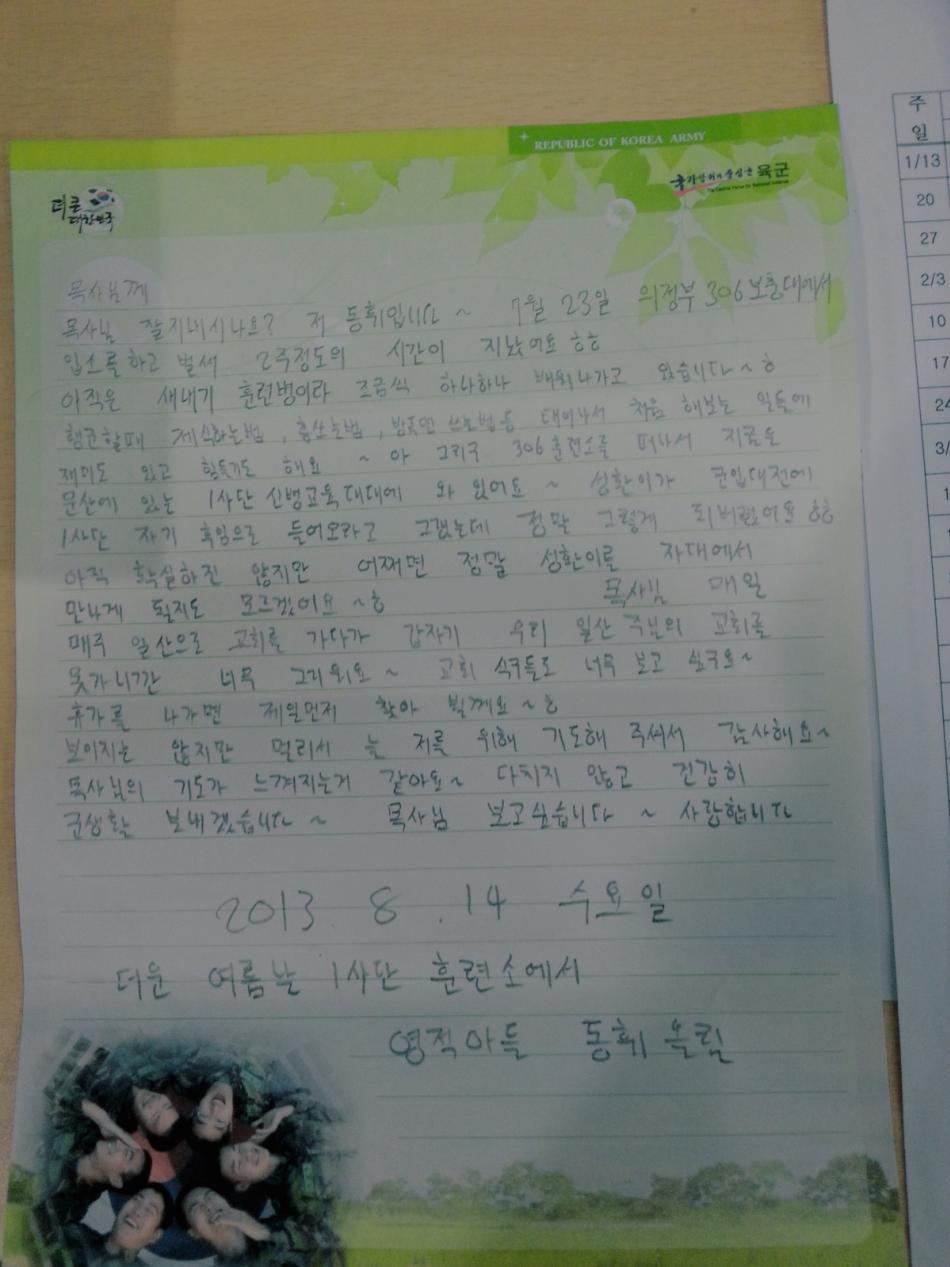 REPUBLIC OF KOREA ARMY
국가방위의 중심군 육군
The Central Force for National Defense
더 큰
대한민국
목사님께
목사님 잘지내시나요? 저 동휘입니다 ~ 7월 23일 의정부 306보충대에서
입소를하고 벌써 2주정도의 시간이 지났어요 ㅎㅎ
아직은 새내기 훈련병이라 조금씩 하나하나 배워나가고 있습니다~ㅎ
행군할때 제식하는법, 총쏘는법, 방독면 쓰는법등 태어나서 처음 해보는 일들에
재미도 있고 힘들기도 해요 ~ 아 그리구 306훈련소를 떠나서 지금은
문산에 있는 1사단 신병교육대대에 와 있어요 ~ 성환이가 군입대전에
1사단 자기 후임으로 들어오라고 그랬는데 정말 그렇게 되버렸어요 ㅎㅎ
아직 확실하진 않지만 어쩌면 정말 성환이를 자대에서
만나게 될지도 모르겠어요 ~ㅎ 목사님 매일
매주 일산으로 교회를 가다가 갑자기 우리 일산 주님의 교회를
못가니깐 너무 그리워요 ~ 교회 식구들도 너무 보고 싶구요~
휴가를 나가면 제일먼저 찾아 뵐께요 ~ㅎ
보이지는 않지만 멀리서 늘 저를 위해 기도해 주셔서 감사해요~
목사님의 기도가 느껴지는거 같아요~ 다치지 않고 건강히
군생활 보내겠습니다 ~ 목사님 보고싶습니다 ~ 사랑합니다
2013. 8. 14 수요일
더운 여름날 1사단 훈련소에서
영적아들 동휘 올림
주
일
1/13
20
27
2/3
10
17
24
3/